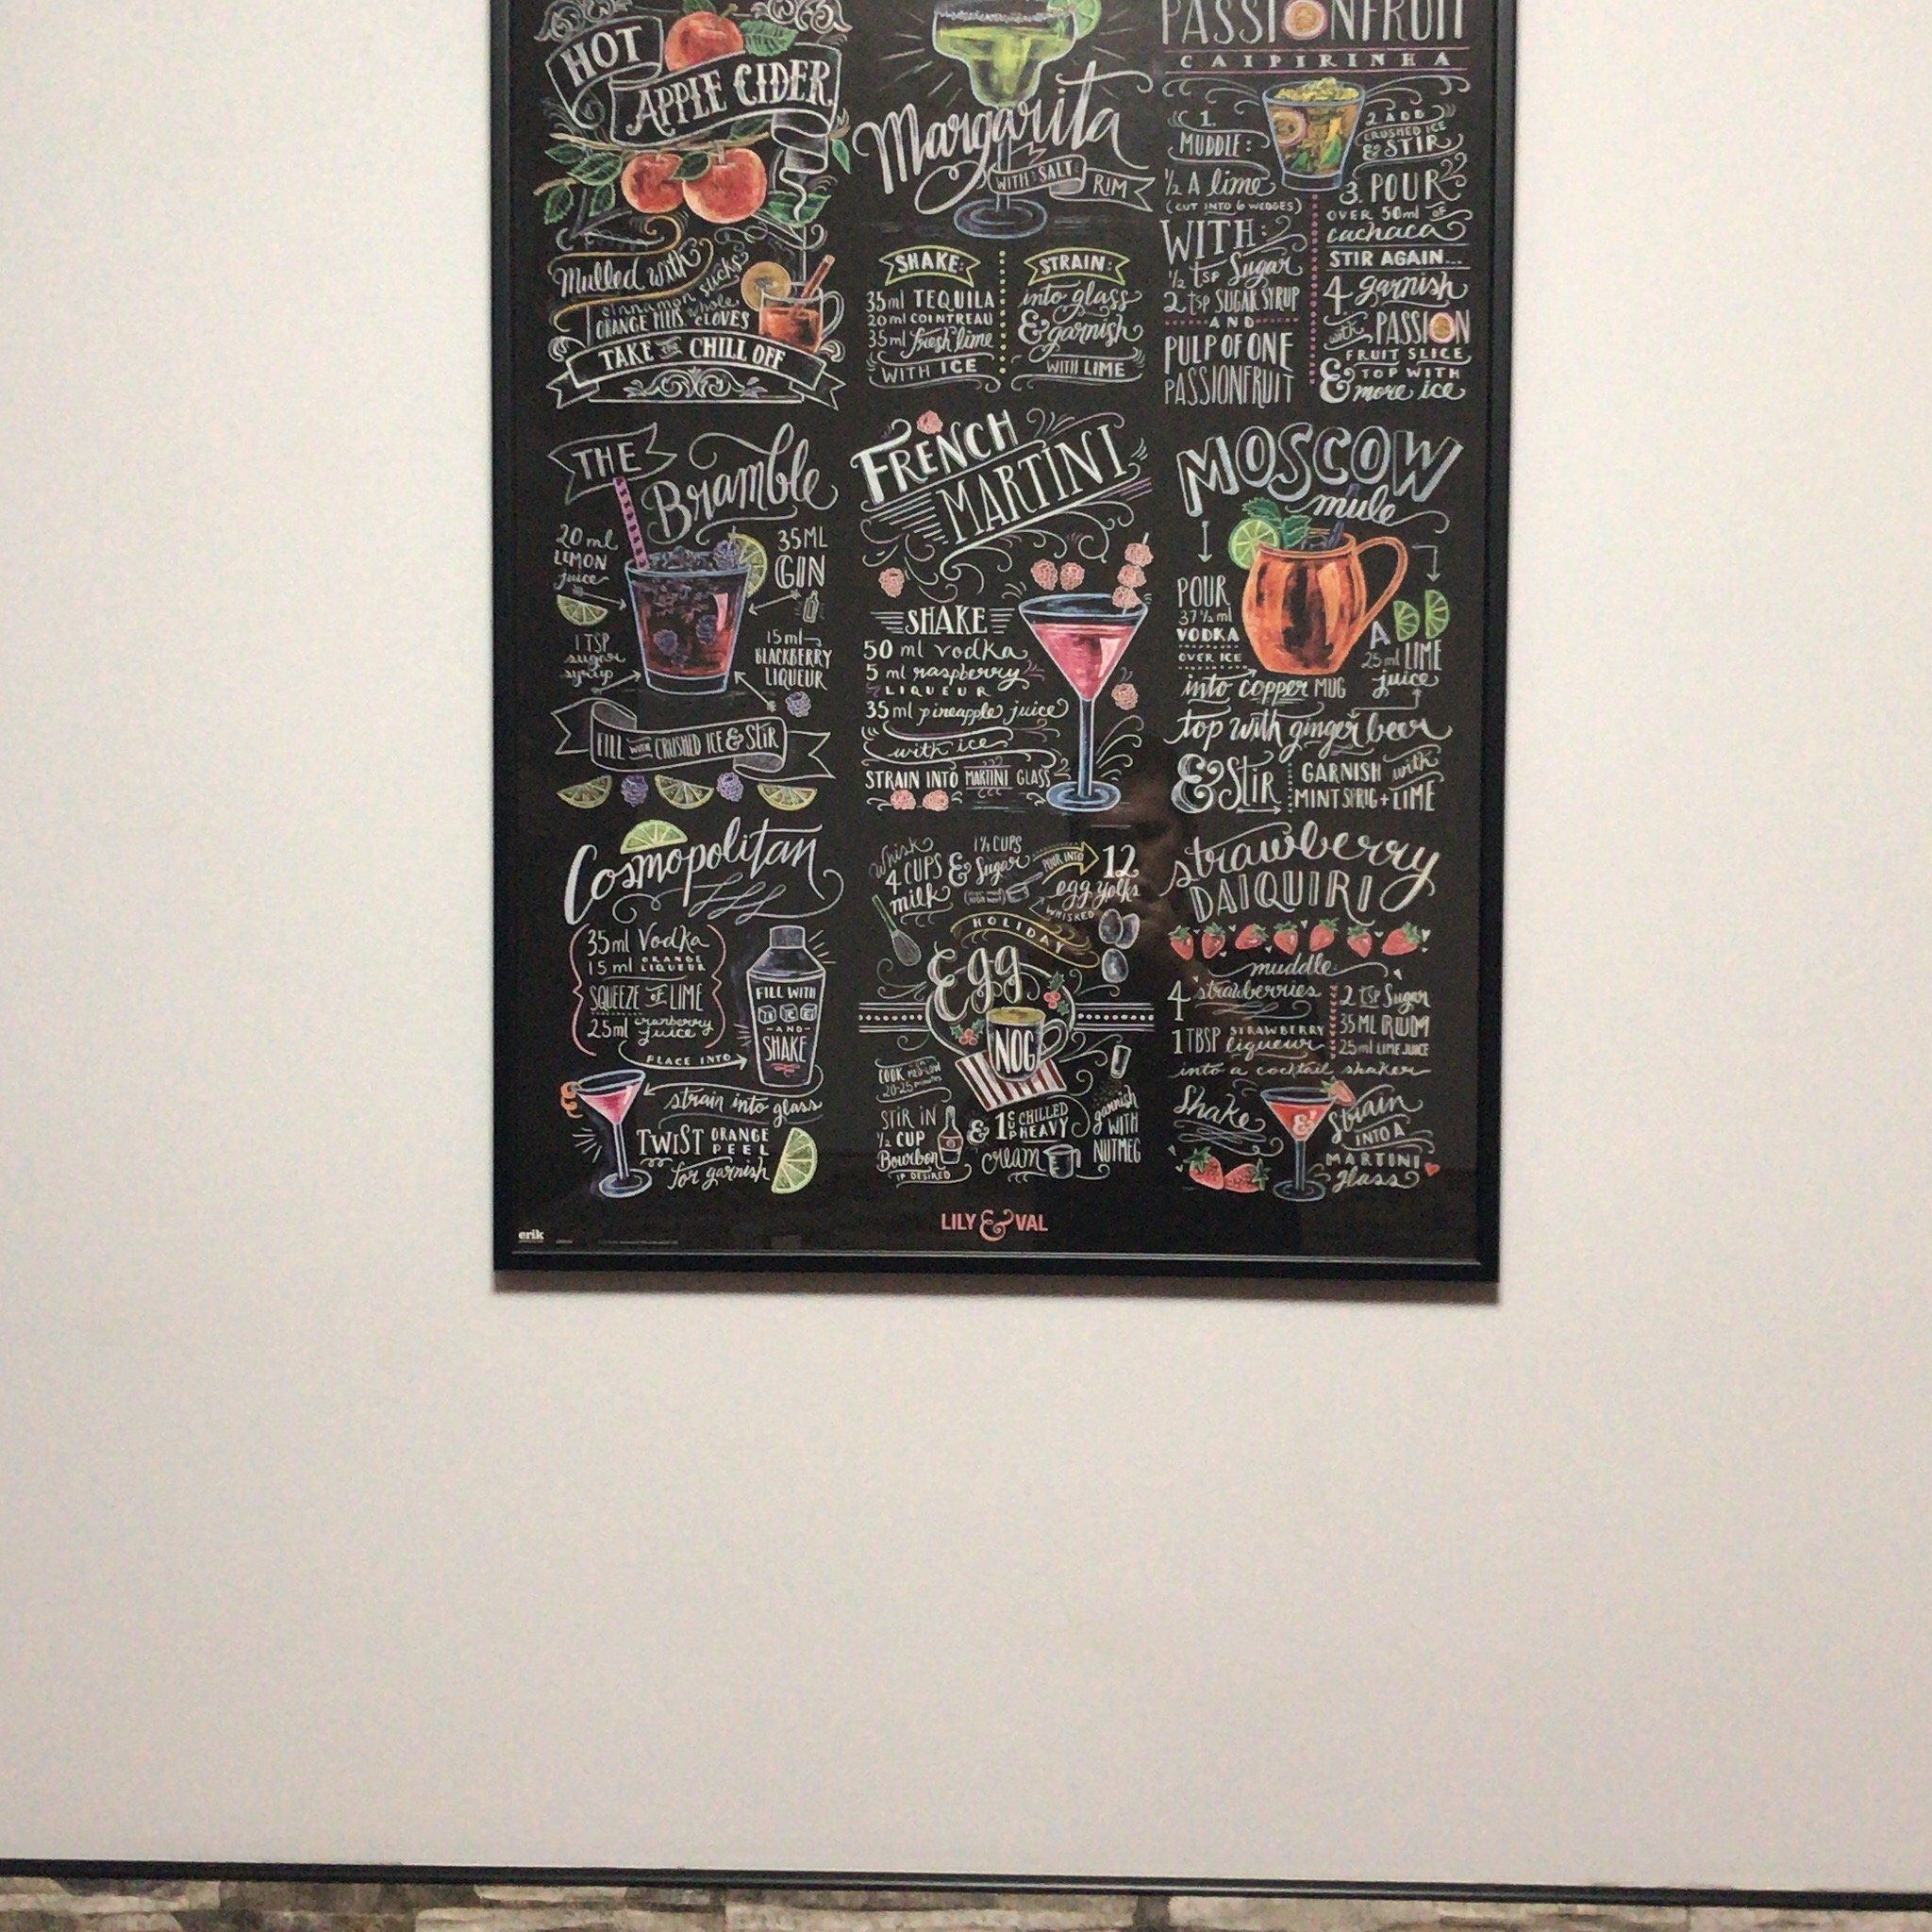 HOT
APPLE CIDER
Mulled with
cinnamon sticks
ORANGE PEELS, whole CLOVES
TAKE THE CHILL OFF
Margarita
WITH SALT RIM
SHAKE:
35ml TEQUILA
20ml COINTREAU
35ml fresh lime
WITH ICE
STRAIN:
into glass
& garnish
WITH LIME
PASSIONFRUIT
CAIPIRINHA
1.
MUDDLE:
1/2 A lime
(CUT INTO 6 WEDGES)
WITH:
1/2 TSP Sugar
2 TSP SUGAR SYRUP
AND
PULP OF ONE
PASSIONFRUIT
2. ADD
CRUSHED ICE
& STIR
3. POUR
OVER 50ml OF
cachaca
STIR AGAIN...
4 garnish
with PASSION
FRUIT SLICE
& TOP WITH
more ice
THE
Bramble
20 ml
LEMON
juice
35ML
GIN
1 TSP
sugar
syrup
15 ml
BLACKBERRY
LIQUEUR
FILL WITH CRUSHED ICE & STIR
FRENCH
MARTINI
SHAKE
50 ml vodka
5 ml raspberry
LIQUEUR
35 ml pineapple juice
with ice
STRAIN INTO MARTINI GLASS
MOSCOW
mule
POUR
37 1/2 ml
VODKA
OVER ICE
into copper MUG
A
25 ml LIME
juice
top with ginger beer
& STIR
GARNISH with
MINT SPRIG + LIME
Cosmopolitan
35ml Vodka
15 ml ORANGE LIQUEUR
SQUEEZE OF LIME
25ml cranberry juice
PLACE INTO
FILL WITH
ICE
AND
SHAKE
strain into glass
TWIST ORANGE PEEL
for garnish
Whisk
4 CUPS
milk
& 1 1/2 CUPS
Sugar
POUR INTO
12
egg yolks
WHISKED
HOLIDAY
Egg
NOG
COOK MED-LOW
20-25 minutes
STIR IN
1/2 CUP
Bourbon
IF DESIRED
& 1 CUP CHILLED
HEAVY
cream
garnish
WITH
NUTMEG
strawberry
DAIQUIRI
muddle:
4 strawberries
1 TBSP STRAWBERRY
liqueur
2 TSP Sugar
35 ML RUM
25 ml LIME JUICE
into a cocktail shaker
Shake
&
Strain
INTO A
MARTINI
glass
LILY & VAL
erik